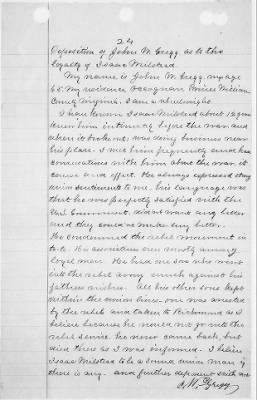 24
Deposition of John W. Gregg as to the
loyalty of Isaac Milstead.
My name is John W. Gregg, my age
65. My residence Occoquan Prince William
County Virginia. I am a wheelwright
I have known Isaac Milstead about 12 years
knew him intimately before the war and
when it broke out, was doing business near
his place. I met him frequently and had
conversations with him about the war, its
cause and effect. He always expressed strong
union sentiments to me, his language was
that he was perfectly satisfied with the
U.S. Government, did not want any better
and they could not make any better.
He condemned the rebel movement in
toto. His associations were mostly among
loyal men. He had one son who went
into the rebel army much against his
fathers wishes. All his other sons kept
within the union lines. One was arrested
by the rebels and taken to Richmond as I
believe because he would not go into the
rebel service he never came back, but
died there as I was informed. I believe
Isaac Milstead to be a sound union man if
there is any. And further deponent saith not
J. W. Gregg